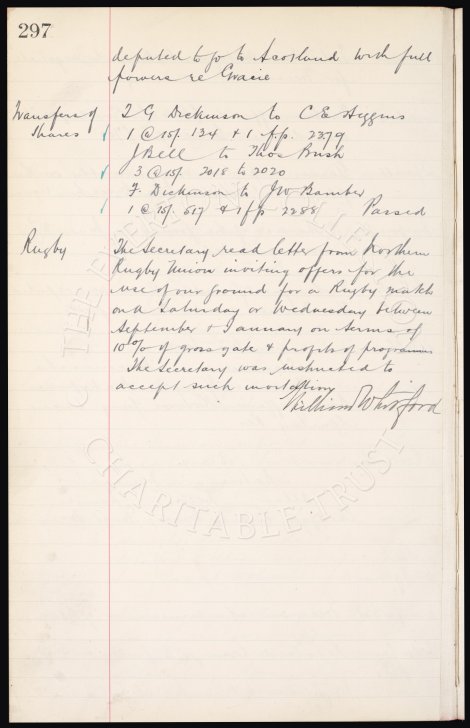 297
deputed to go to Scotland with full
powers re Gracie
Transfers of
Shares
T G Dickinson to C E Higgins
1 @ 15/. 134 & 1 f.p. 2379
J Bell to Thos Brush
3 @ 15/. 2018 to 2020
F. Dickinson to JW Bamber
1 @ 15/. 617 & 1 fp 2288 Passed
Rugby
The Secretary read letter from Northern
Rugby Union inviting offers for the
use of our ground for a Rugby match
on a Saturday or Wednesday between
September & January on terms of
10% of gross gate & profits of programmes
The Secretary was instructed to
accept such invitation
William Whitford
© THE EVERTON COLLECTION
CHARITABLE TRUST